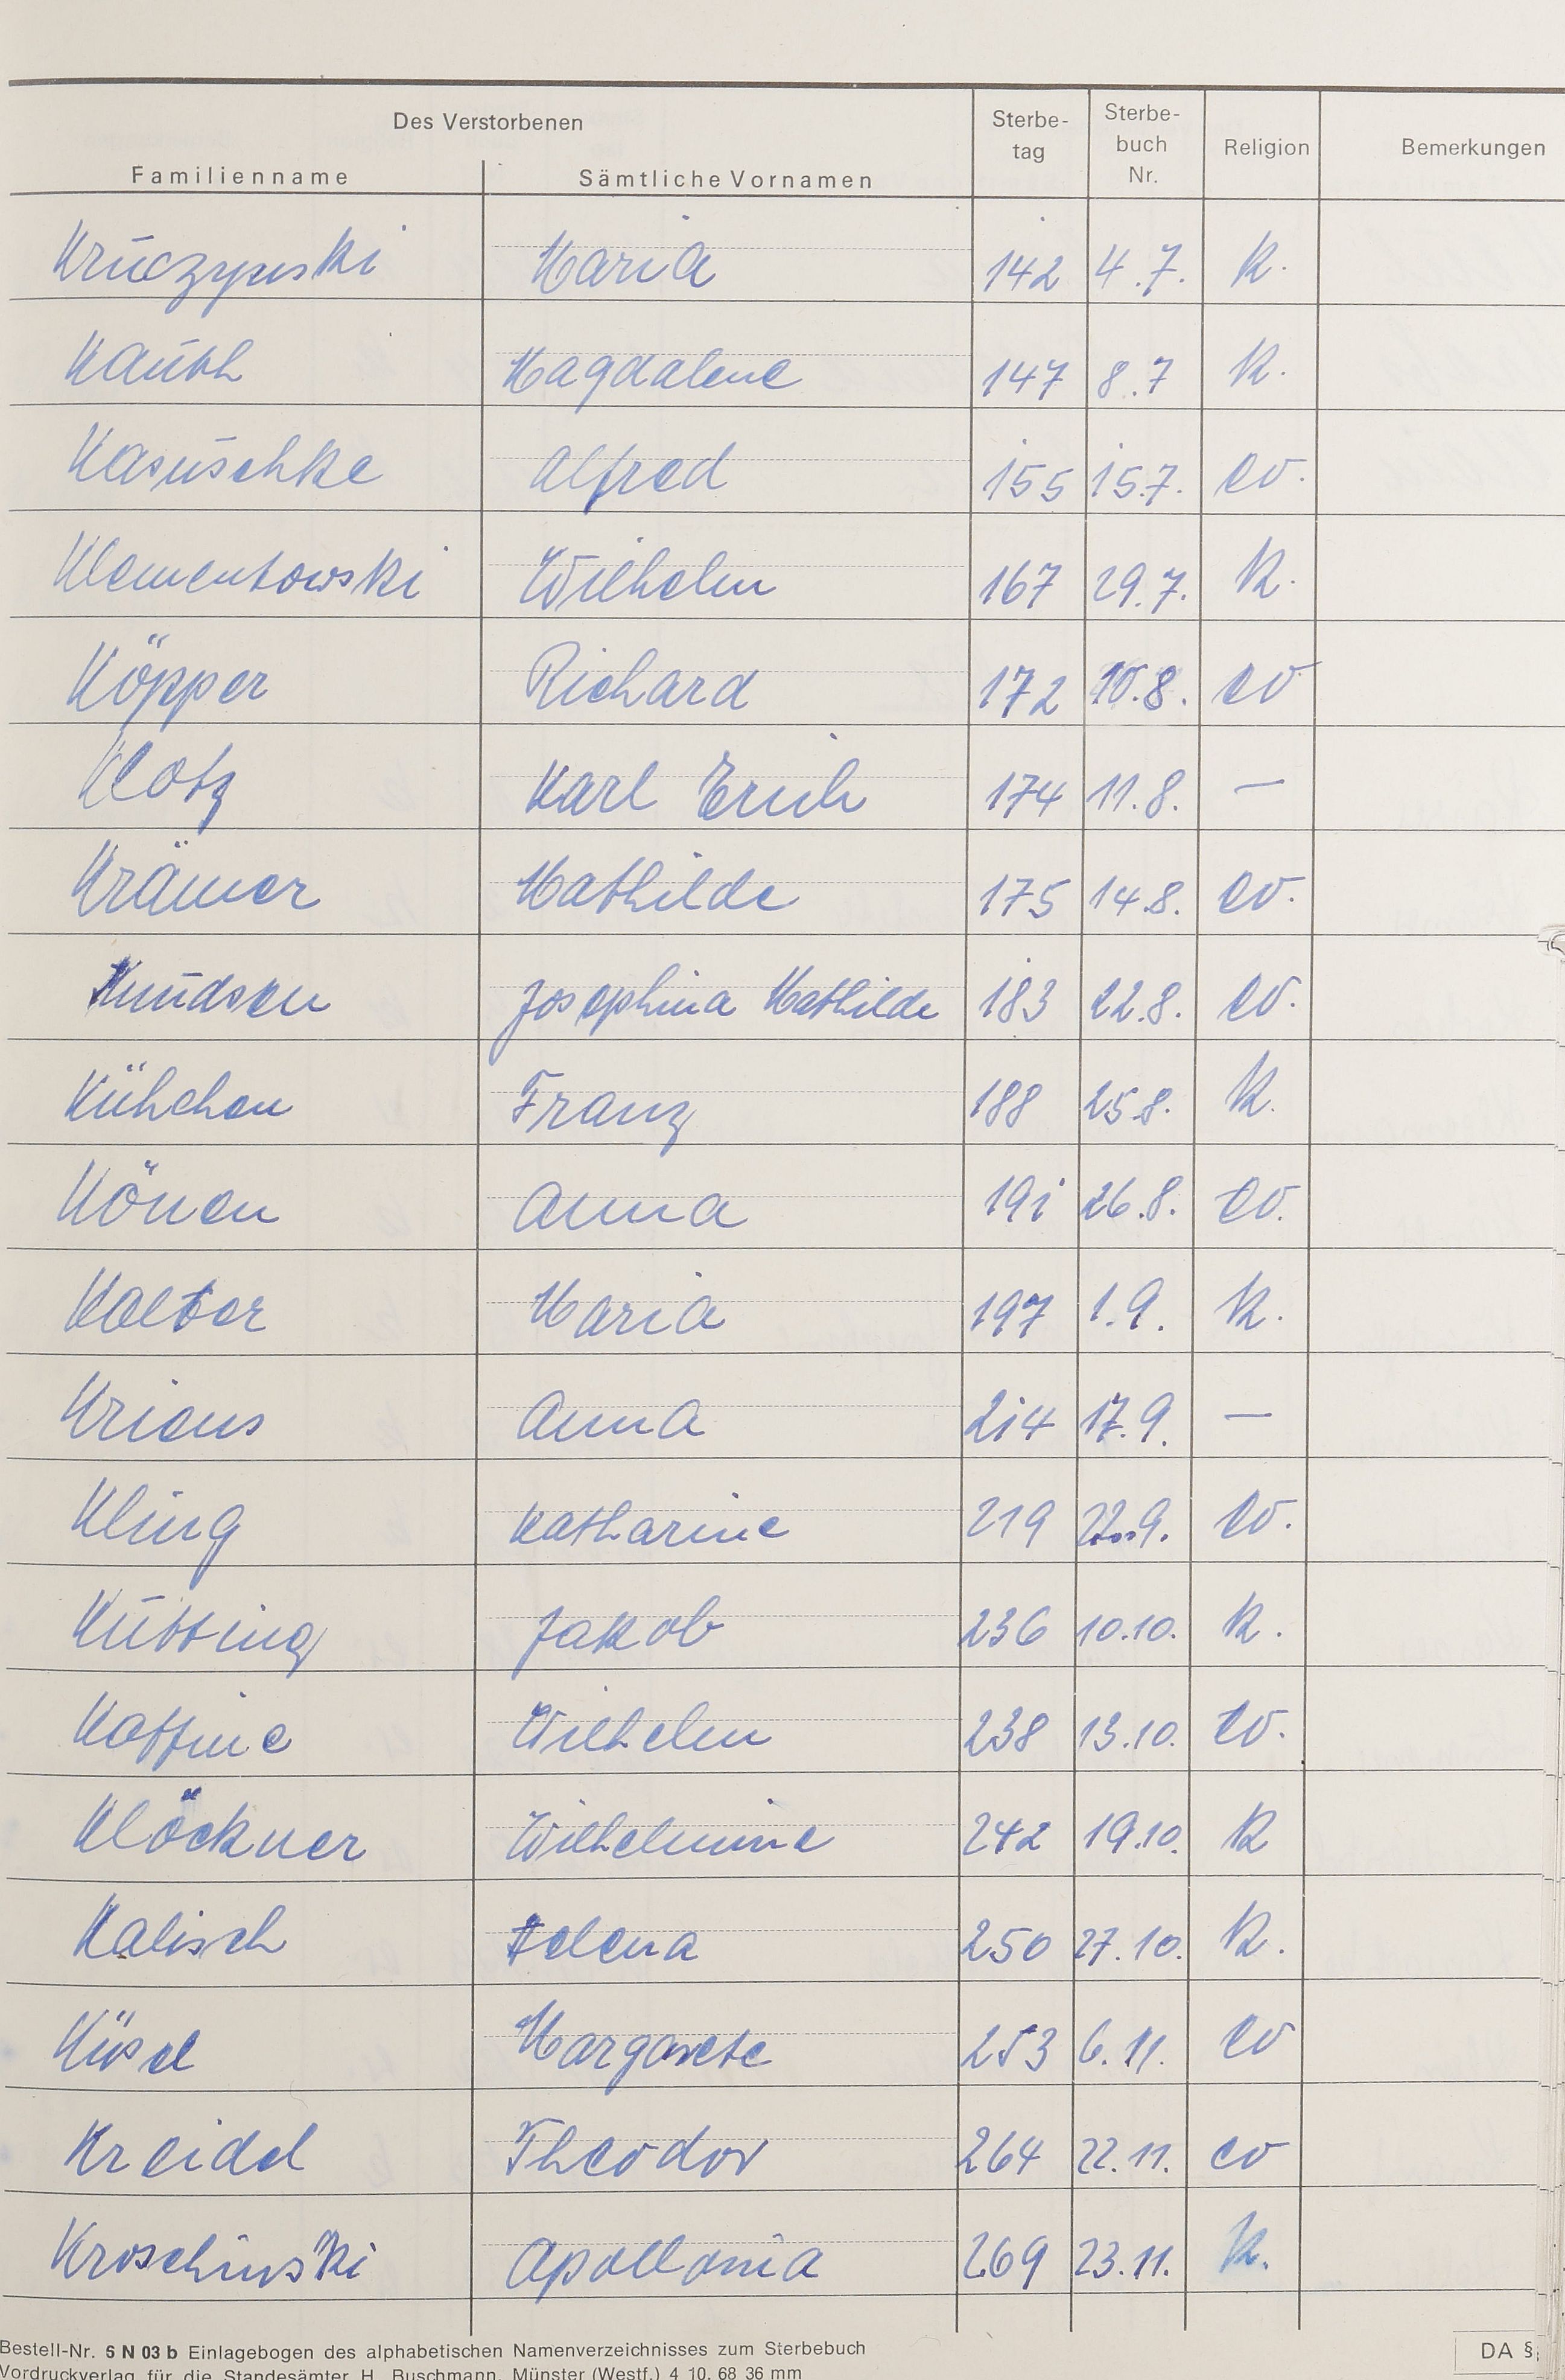 Des Verstorbenen
Familienname Sämtliche Vornamen Sterbe-tag Sterbe-buch Nr. Religion Bemerkungen
Kruczynski Maria 142 4.7. k.
Kauth Magdalene 147 8.7 k.
Kasuschke Alfred 155 15.7. ev.
Klementowski Wilhelm 167 29.7. k.
Köpper Richard 172 10.8. ev
Klotz Karl Erich 174 11.8. —
Krämer Mathilde 175 14.8. ev.
Knudsen Josephina Mathilde 183 22.8. ev.
Kühchen Franz 188 25.8. k.
Könen Anna 191 26.8. ev.
Kalter Maria 197 1.9. k.
Kriens Anna 214 17.9. —
Kling Katharine 219 22.9. ev.
Kütting Jakob 236 10.10. k.
Kottine Wilhelm 238 13.10. ev.
Klöckner Wilhelmine 242 19.10. k
Kalisch Helena 250 27.10. k.
Küsel Margarete 253 6.11. ev
Kreidel Theodor 264 22.11. ev
Kroschinski Apollonia 269 23.11. k.
Bestell-Nr. 5 N 03 b Einlagebogen des alphabetischen Namenverzeichnisses zum Sterbebuch
DA §
Vordruckverlag für die Standesämter H. Buschmann, Münster (Westf.) 4 10. 68 36 mm